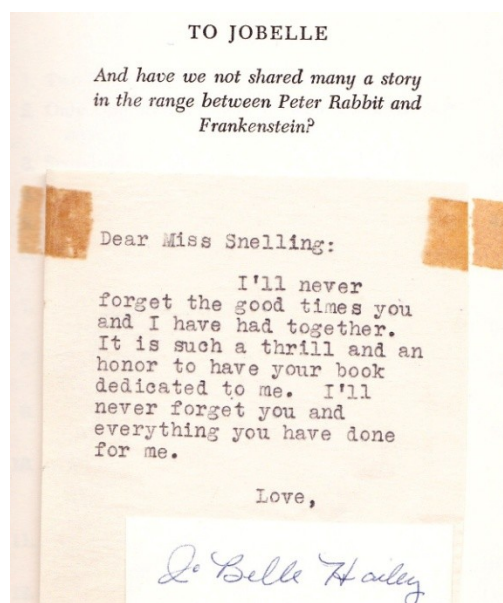 TO JOBELLE
And have we not shared many a story
in the range between Peter Rabbit and
Frankenstein?
Dear Miss Snelling:
I'll never
forget the good times you
and I have had together.
It is such a thrill and an
honor to have your book
dedicated to me. I'll
never forget you and
everything you have done
for me.
Love,
Jo Belle Hailey